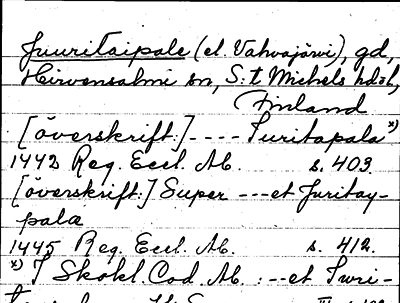 Juuritaipale (el. Vahvajärvi), gd,
Hirvensalmi sn, S:t Michels hd, l,
Finland
[överskrift:] ---- Juritapala *)
1442 Reg. Eccl. Ab. s. 403.
[överskrift:] Super --- et Juritay-
pala
1445 Reg. Eccl. Ab. s. 412.
*) I Skokl. Cod. Ab. : -- et Juri-